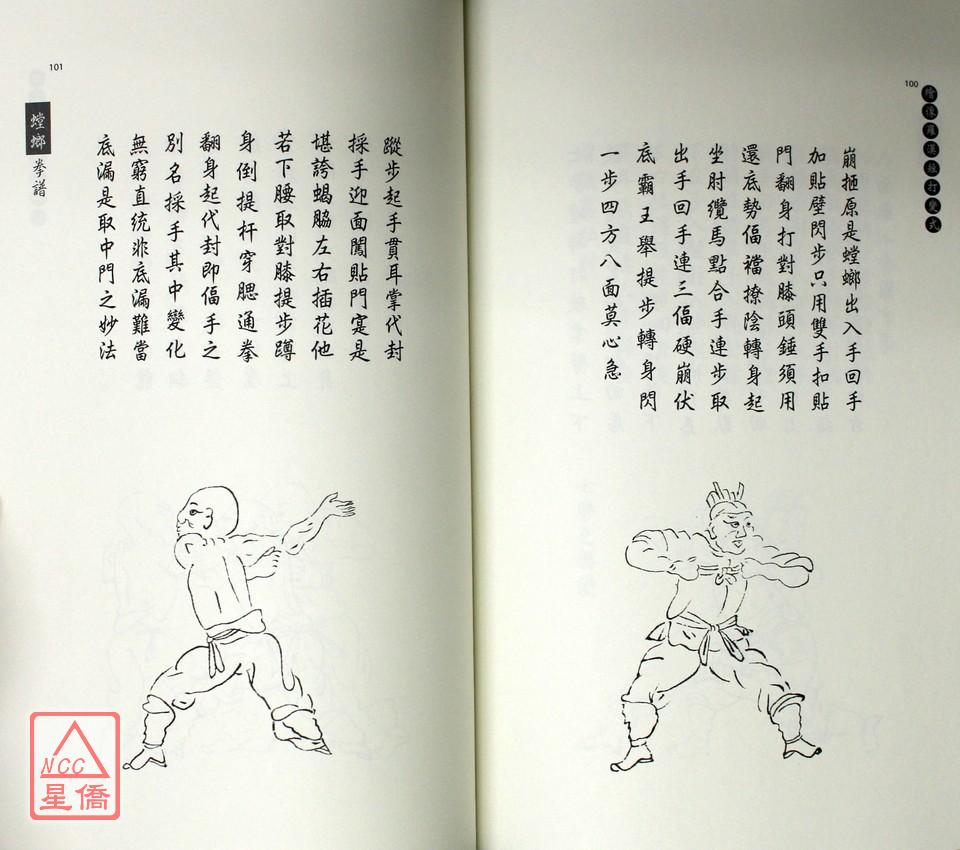 100
繪像羅漢短打變式
崩捶原是螳螂出入手回手
加貼壁閃步只用雙手扣貼
門翻身打對膝頭錘須用
還底勢偪襠撩陰轉身起
坐肘纜馬點合手連步取
出手回手連三偪硬崩伏
底霸王舉提步轉身閃
一步四方八面莫心急
101
螳螂拳譜
蹤步起手貫耳掌代封
採手迎面闖貼門寔是
堪誇蝎脇左右插花他
若下腰取對膝提步蹲
身倒提杆穿腮通拳
翻身起代封即偪手之
別名採手其中變化
無窮直統非底漏難當
底漏是取中門之妙法
NCC
星僑